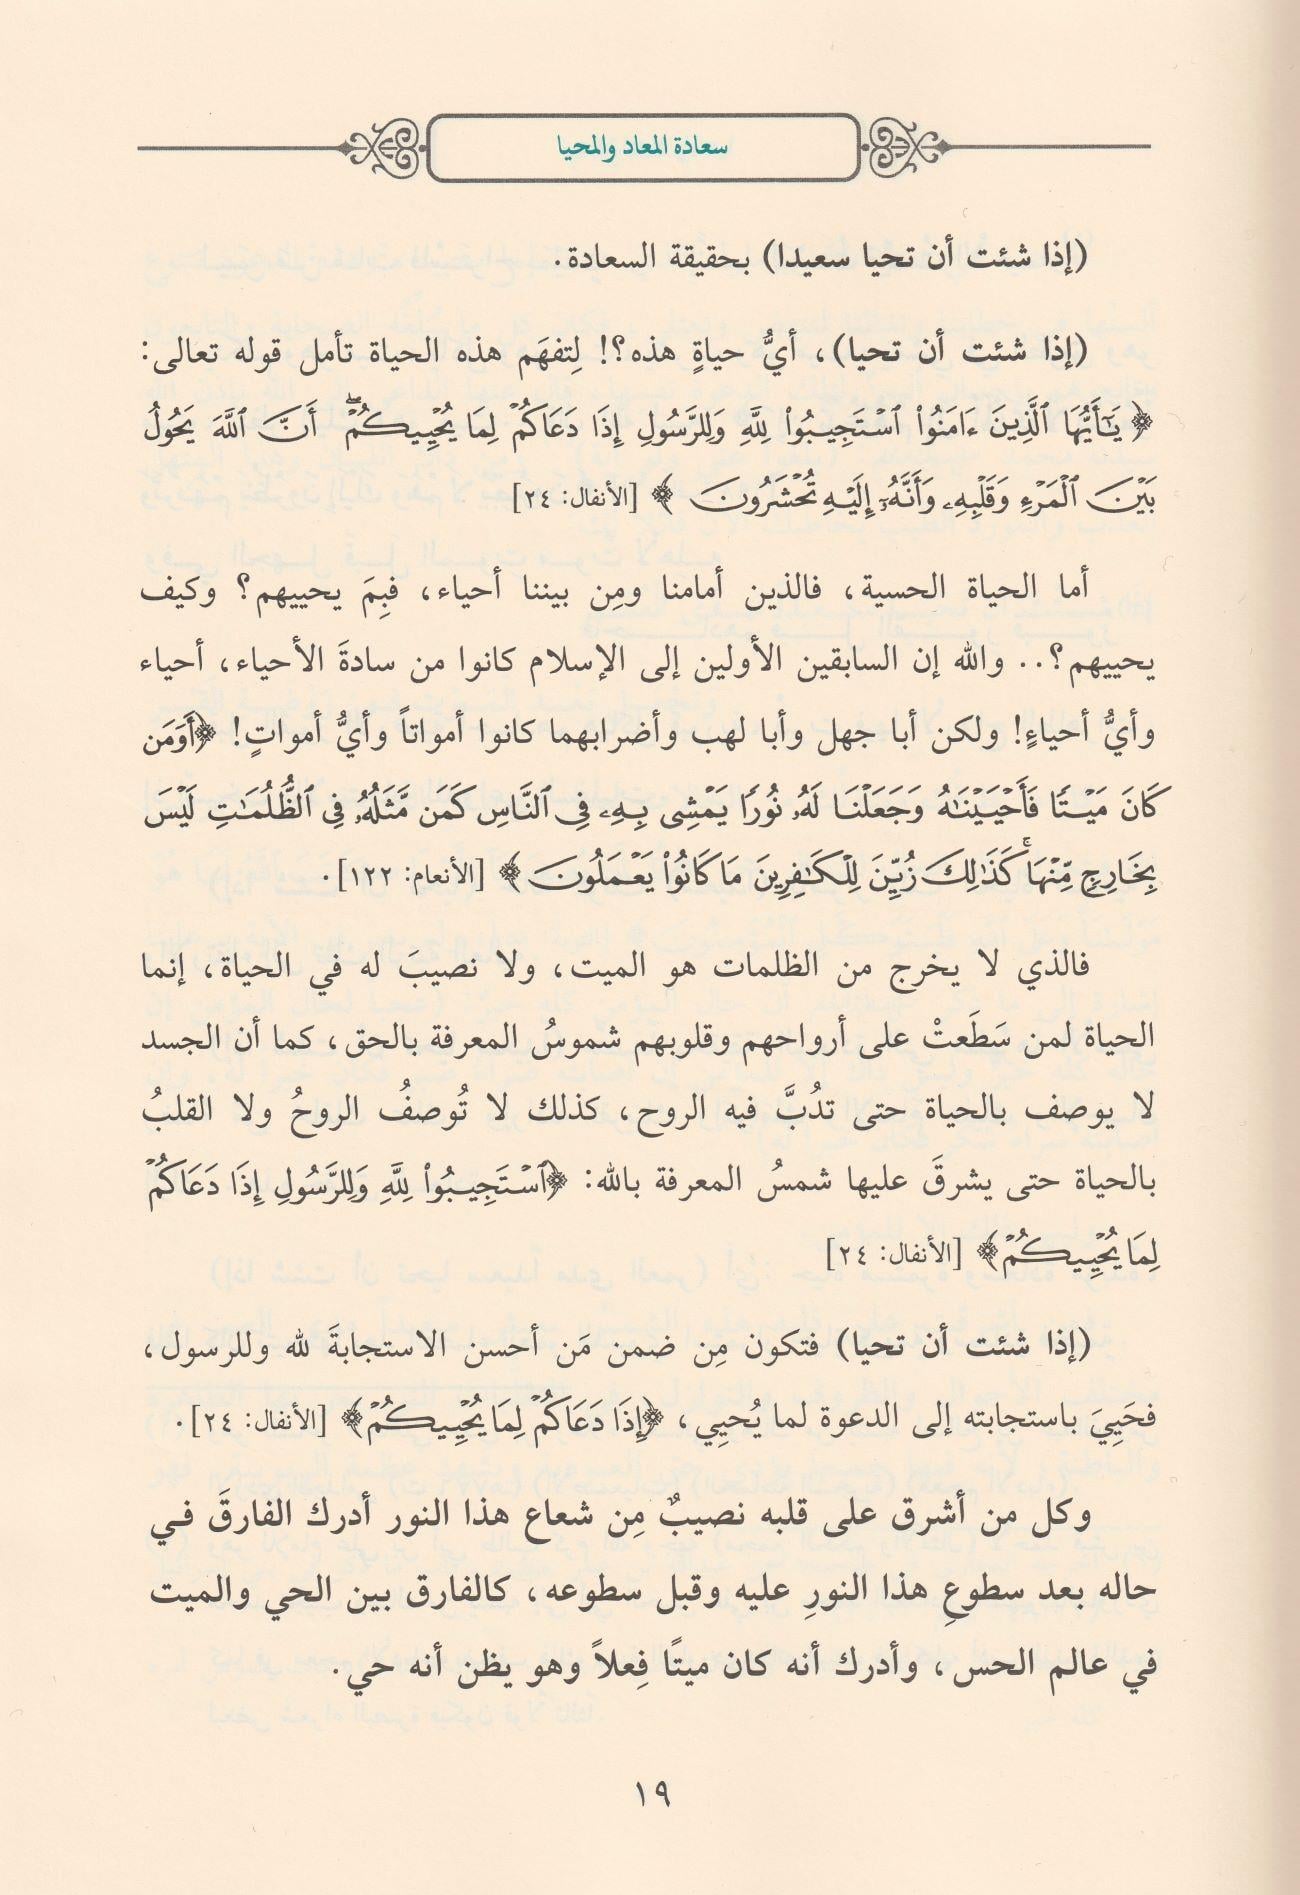 سعادة المعاد والمحيا
(إذا شئت أن تحيا سعيدا) بحقيقة السعادة.
(إذا شئت أن تحيا)، أيُّ حياةٍ هذه؟! لِتفهَم هذه الحياة تأمل قوله تعالى:
﴿ يَٰٓأَيُّهَا ٱلَّذِينَ ءَامَنُوا۟ ٱسْتَجِيبُوا۟ لِلَّهِ وَلِلرَّسُولِ إِذَا دَعَاكُمْ لِمَا يُحْيِيكُمْ ۖ أَنَّ ٱللَّهَ يَحُولُ
بَيْنَ ٱلْمَرْءِ وَقَلْبِهِۦ وَأَنَّهُۥٓ إِلَيْهِ تُحْشَرُونَ ﴾ [الأنفال: ٢٤]
أما الحياة الحسية، فالذين أمامنا ومِن بيننا أحياء، فبِمَ يحييهم؟ وكيف
يحييهم؟.. والله إن السابقين الأولين إلى الإسلام كانوا من سادةَ الأحياء، أحياء
وأيُّ أحياءٍ! ولكن أبا جهل وأبا لهب وأضرابهما كانوا أمواتاً وأيُّ أمواتٍ! ﴿أَوَمَن
كَانَ مَيْتًا فَأَحْيَيْنَٰهُ وَجَعَلْنَا لَهُۥ نُورًا يَمْشِى بِهِۦ فِى ٱلنَّاسِ كَمَن مَّثَلُهُۥ فِى ٱلظُّلُمَٰتِ لَيْسَ
بِخَارِجٍ مِّنْهَا ۚ كَذَٰلِكَ زُيِّنَ لِلْكَٰفِرِينَ مَا كَانُوا۟ يَعْمَلُونَ ﴾ [الأنعام: ١٢٢].
فالذي لا يخرج من الظلمات هو الميت، ولا نصيبَ له في الحياة، إنما
الحياة لمن سَطَعتْ على أرواحهم وقلوبهم شموسُ المعرفة بالحق، كما أن الجسد
لا يوصف بالحياة حتى تدُبَّ فيه الروح، كذلك لا تُوصفُ الروحُ ولا القلبُ
بالحياة حتى يشرقَ عليها شمسُ المعرفة بالله: ﴿ٱسْتَجِيبُوا۟ لِلَّهِ وَلِلرَّسُولِ إِذَا دَعَاكُمْ
لِمَا يُحْيِيكُمْ﴾ [الأنفال: ٢٤]
(إذا شئت أن تحيا) فتكون مِن ضمن مَن أحسن الاستجابةَ لله وللرسول،
فحَيِيَ باستجابته إلى الدعوة لما يُحيِي، ﴿إِذَا دَعَاكُمْ لِمَا يُحْيِيكُمْ﴾ [الأنفال: ٢٤].
وكل من أشرق على قلبه نصيبٌ مِن شعاع هذا النور أدرك الفارقَ في
حاله بعد سطوعِ هذا النورِ عليه وقبل سطوعه، كالفارق بين الحي والميت
في عالم الحس، وأدرك أنه كان ميتًا فِعلاً وهو يظن أنه حي.
١٩